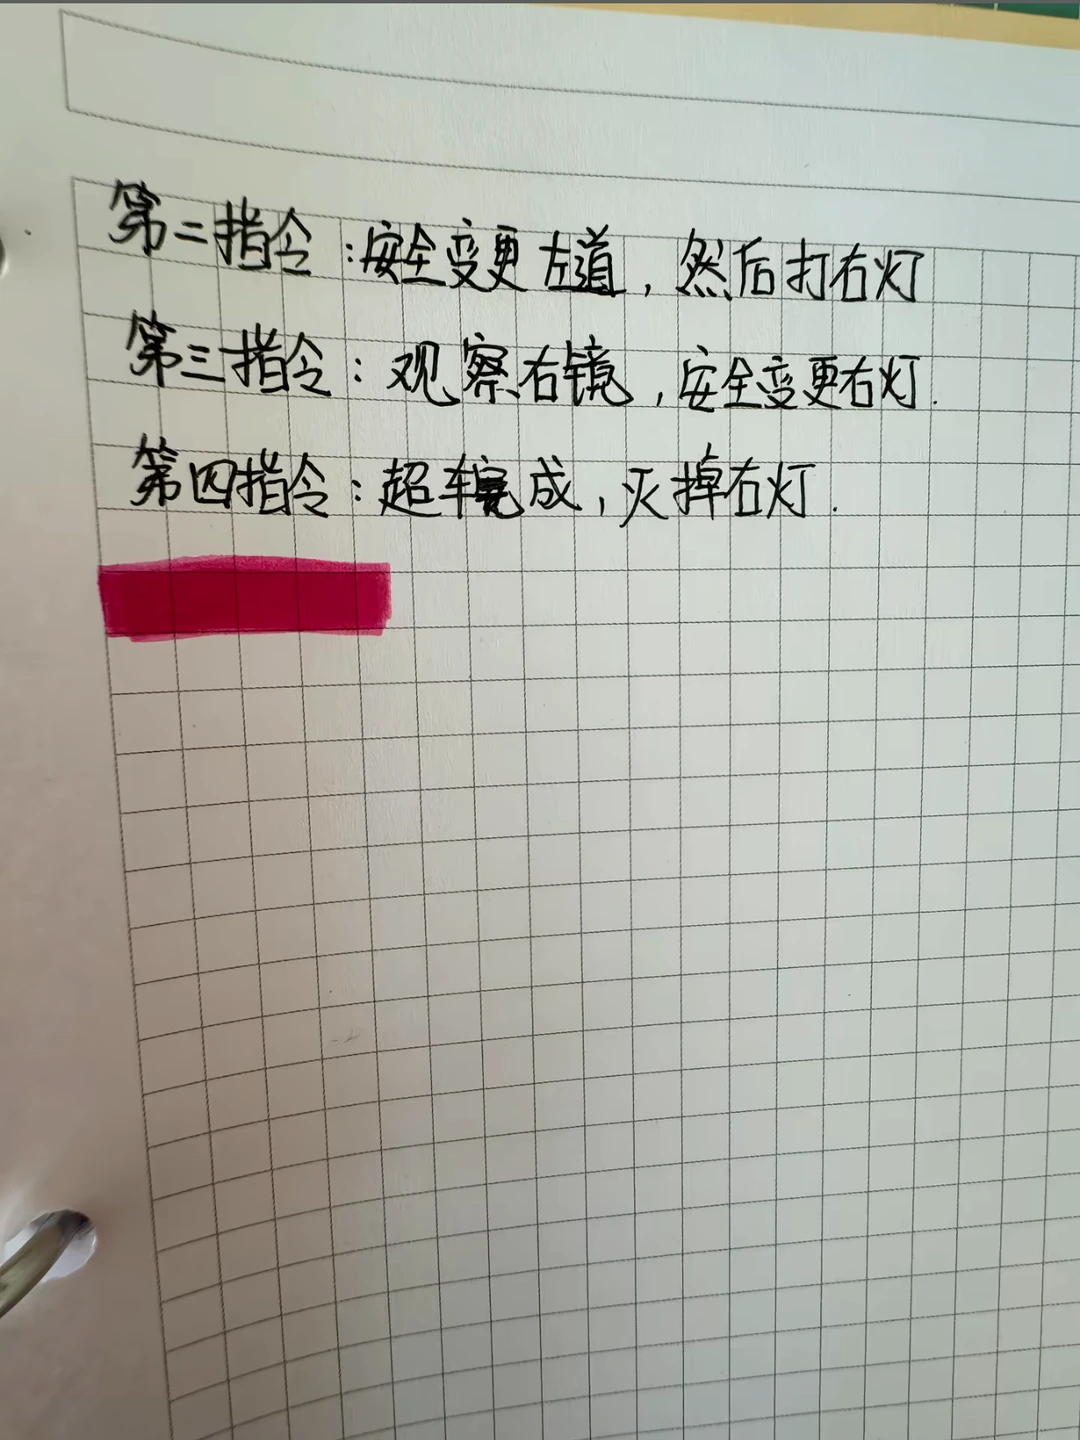 第二指令:安全变更左道,然后打右灯
第三指令:观察右镜,安全变更右灯.
第四指令:超车完成,灭掉右灯.